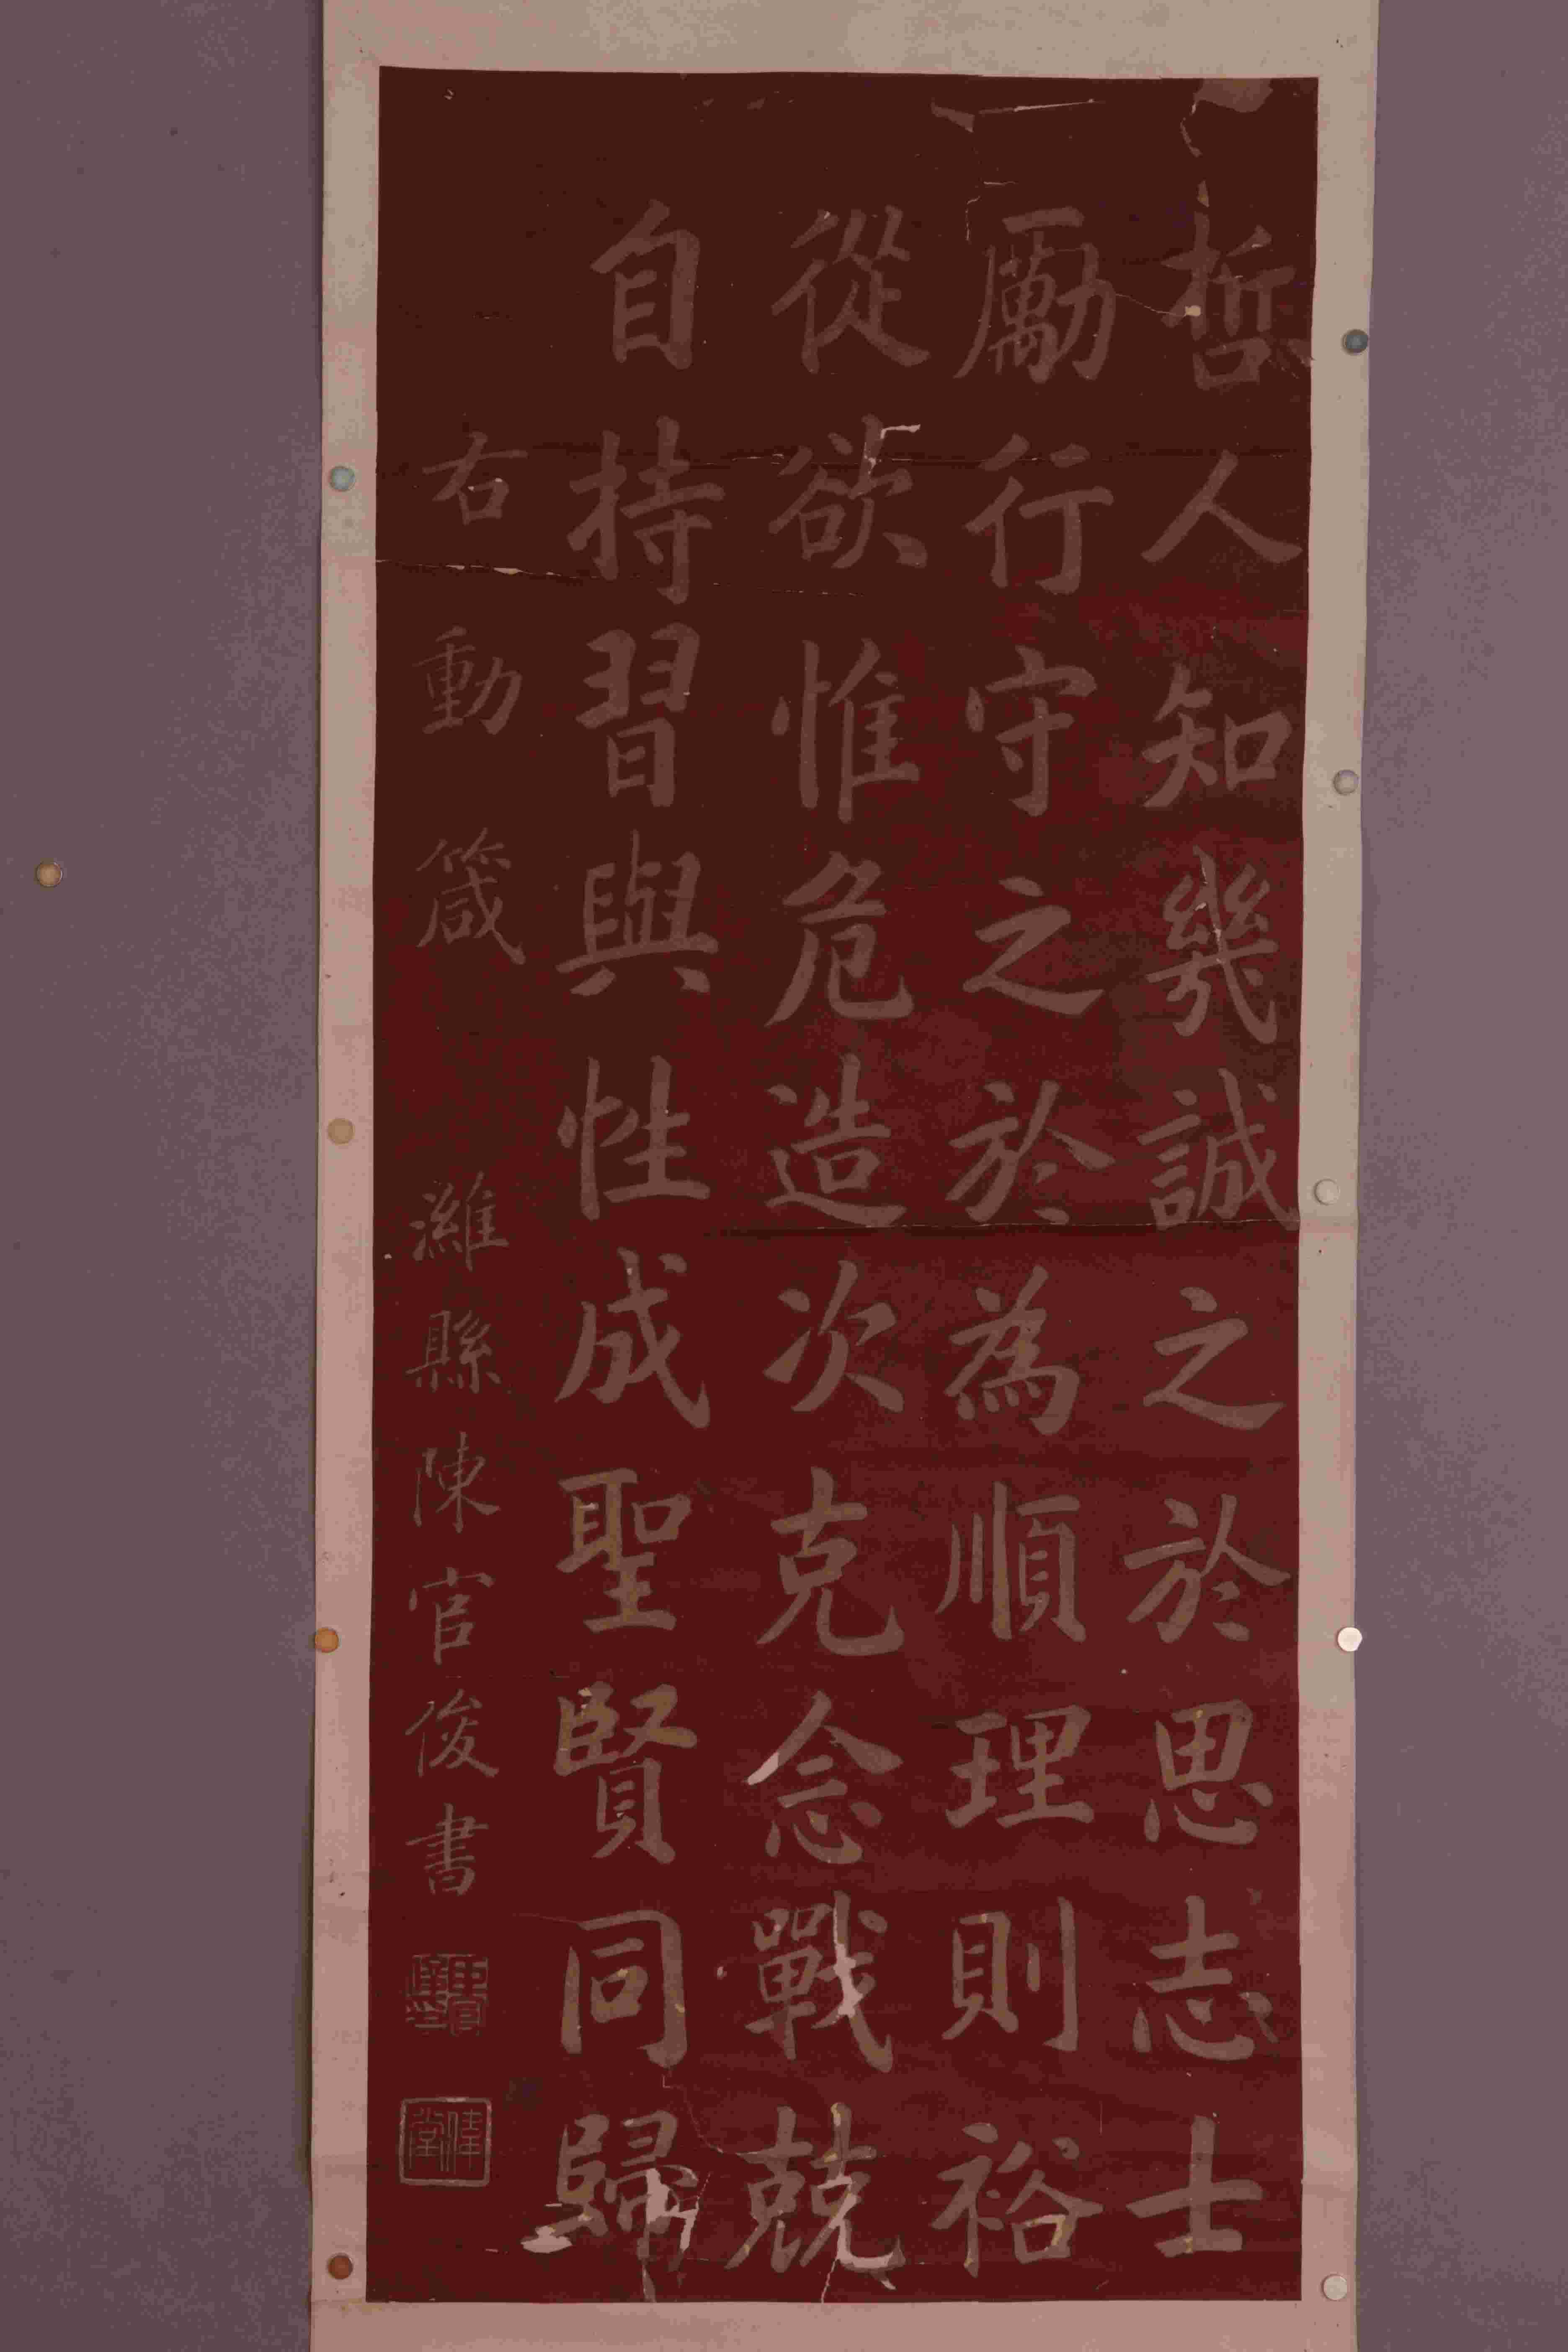 哲人知幾誠之於思志士
勵行守之於為順理則裕
從欲惟危造次克念戰兢
自持習與性成聖賢同歸
右動箴
濰縣陳官俊書
偉堂